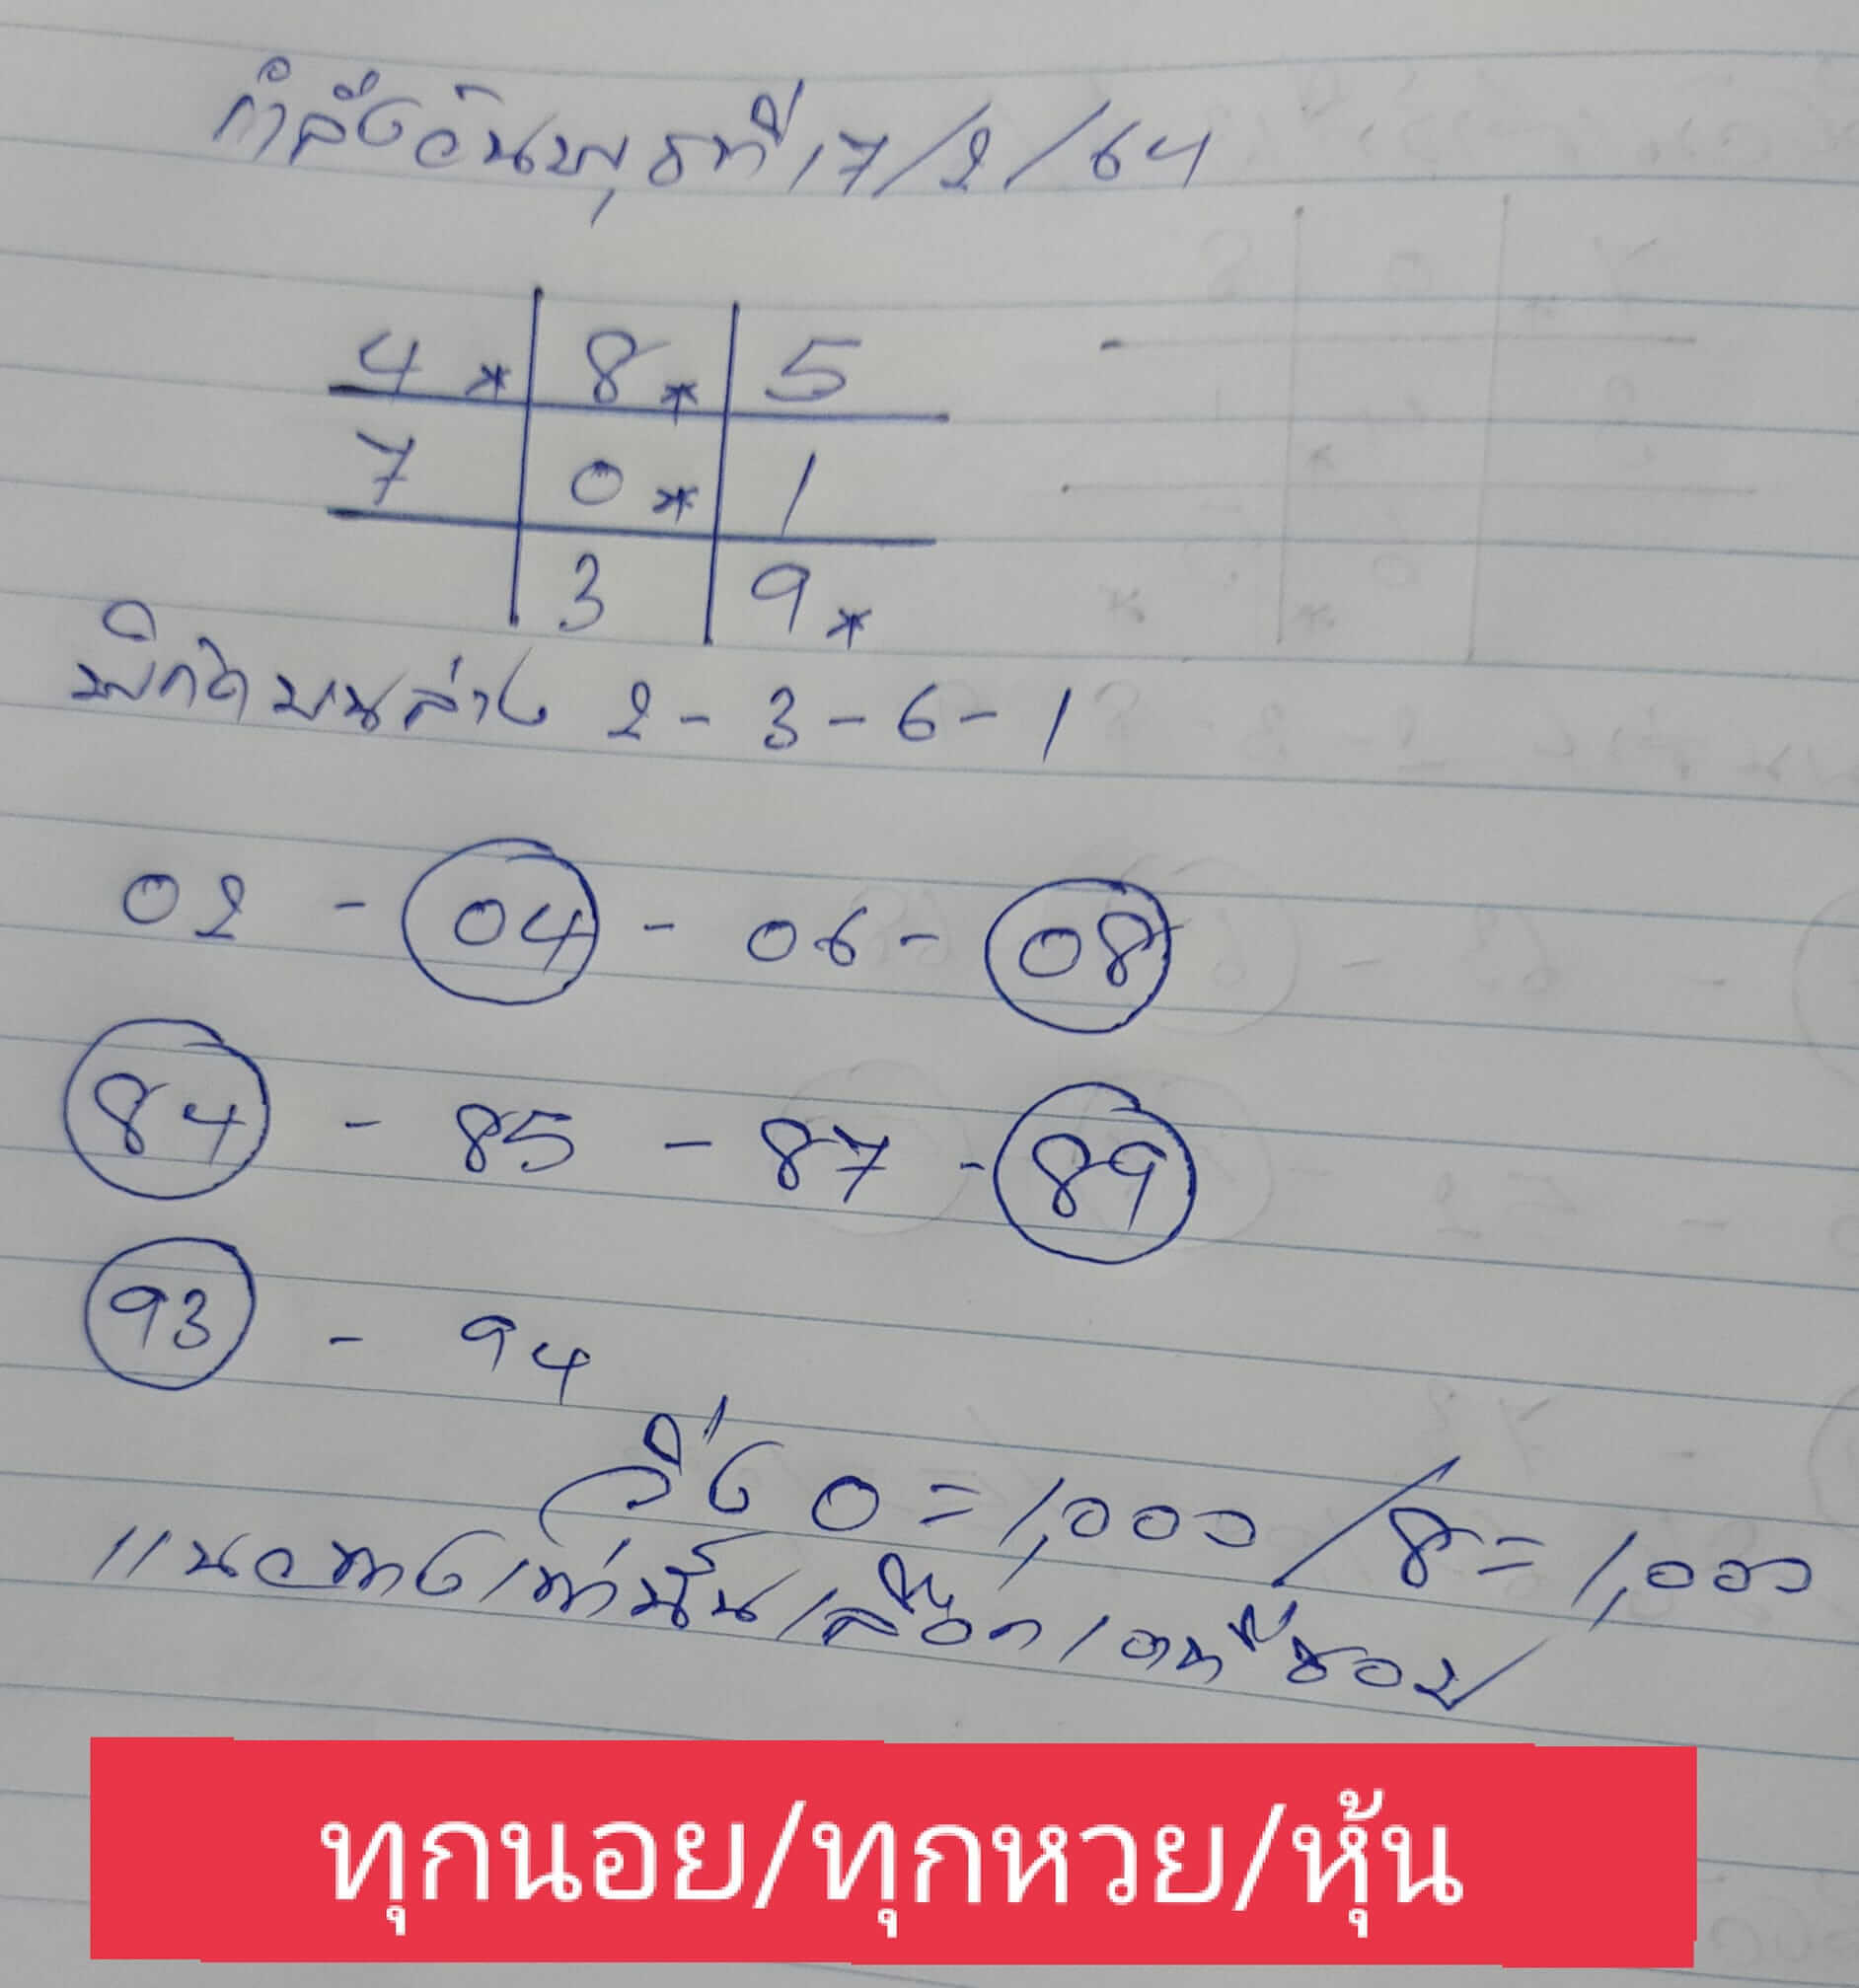 กำลังวันพุธที่ 17/2/64
4* 8* 5
7 0* 1
3 9*
พิกัดบนล่าง 2 - 3 - 6 - 1
02 - 04 - 06 - 08
84 - 85 - 87 - 89
93 - 94
วิ่ง 0 = 1,000 / 8 = 1,000
แนวทางเท่านั้นเลือกเอาที่ชอบ
ทุกนอย/ทุกหวย/หุ้น